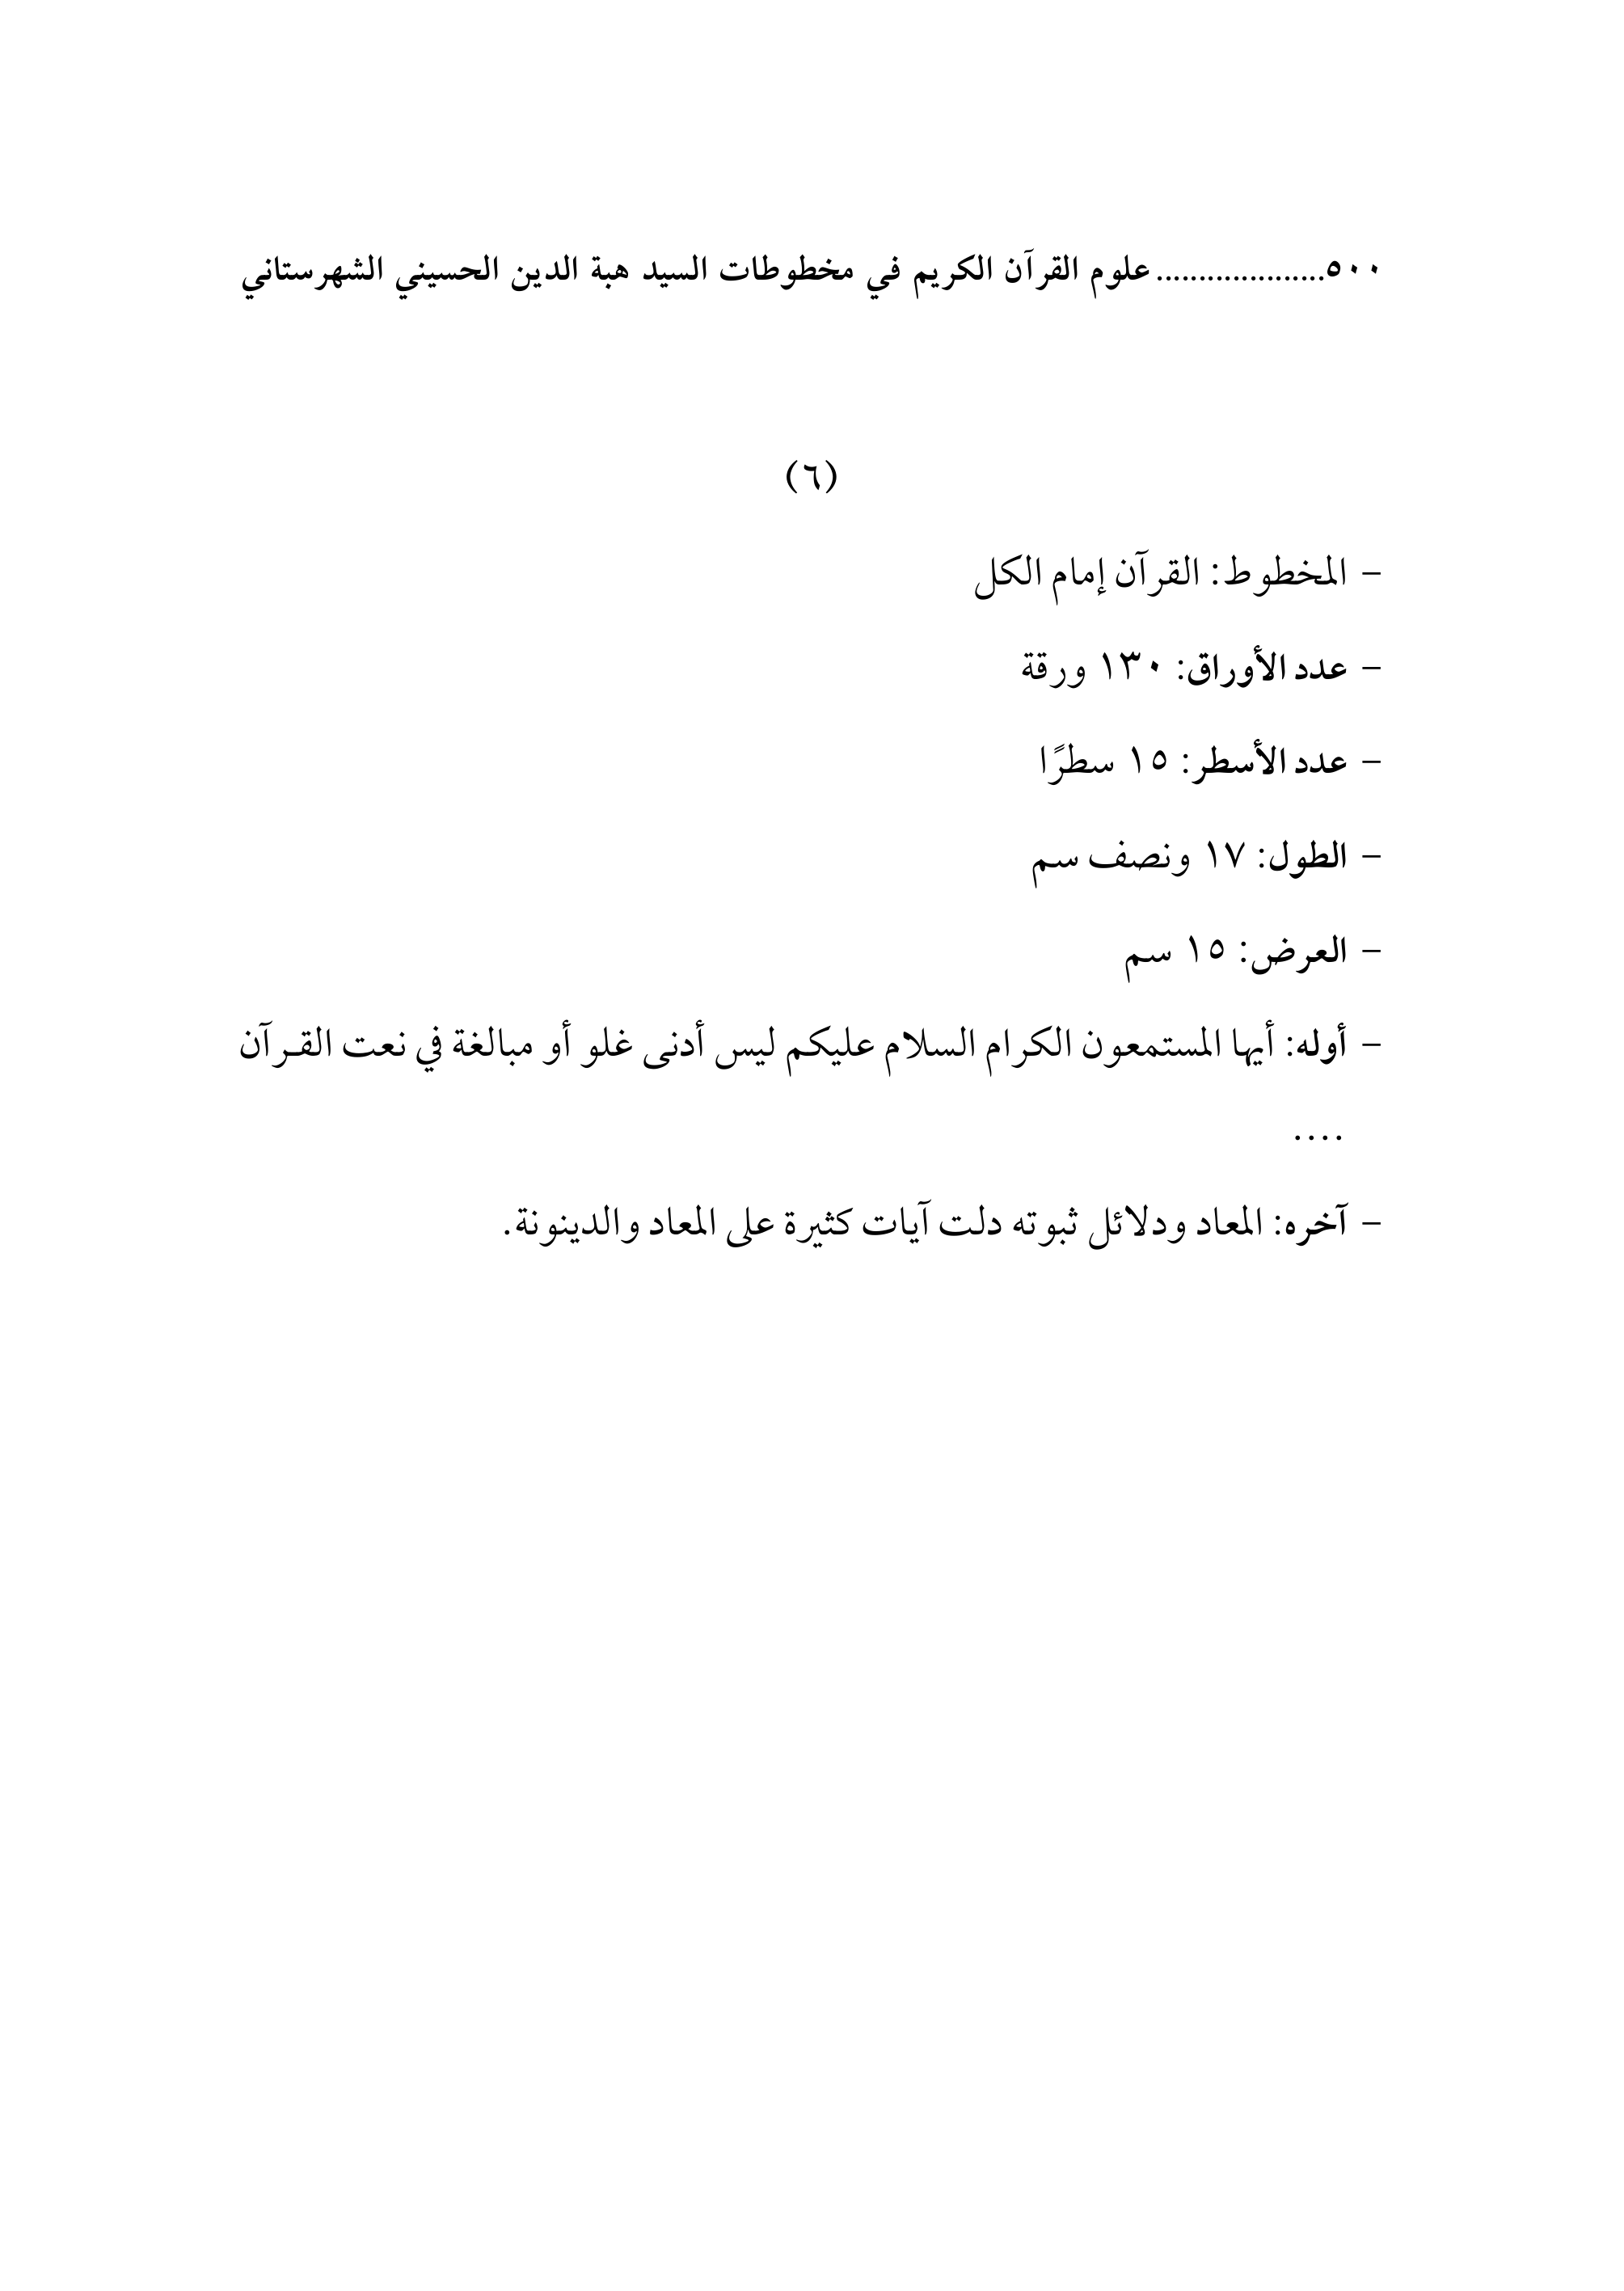 ٥٠٠....................علوم القرآن الكريم في مخطوطات السيد هبة الدين الحسيني الشهرستاني
(٦)
– المخطوط: القرآن إمام الكل
– عدد الأوراق: ١٣٠ ورقة
– عدد الأسطر: ١٥ سطرًا
– الطول: ١٧ ونصف سم
– العرض: ١٥ سم
– أوله: أيها المستمعون الكرام السلام عليكم ليس أدنى غلو أو مبالغة في نعت القـرآن
....
– آخره: المعاد ودلائل ثبوته دلت آيات كثيرة على المعاد والدينونة.